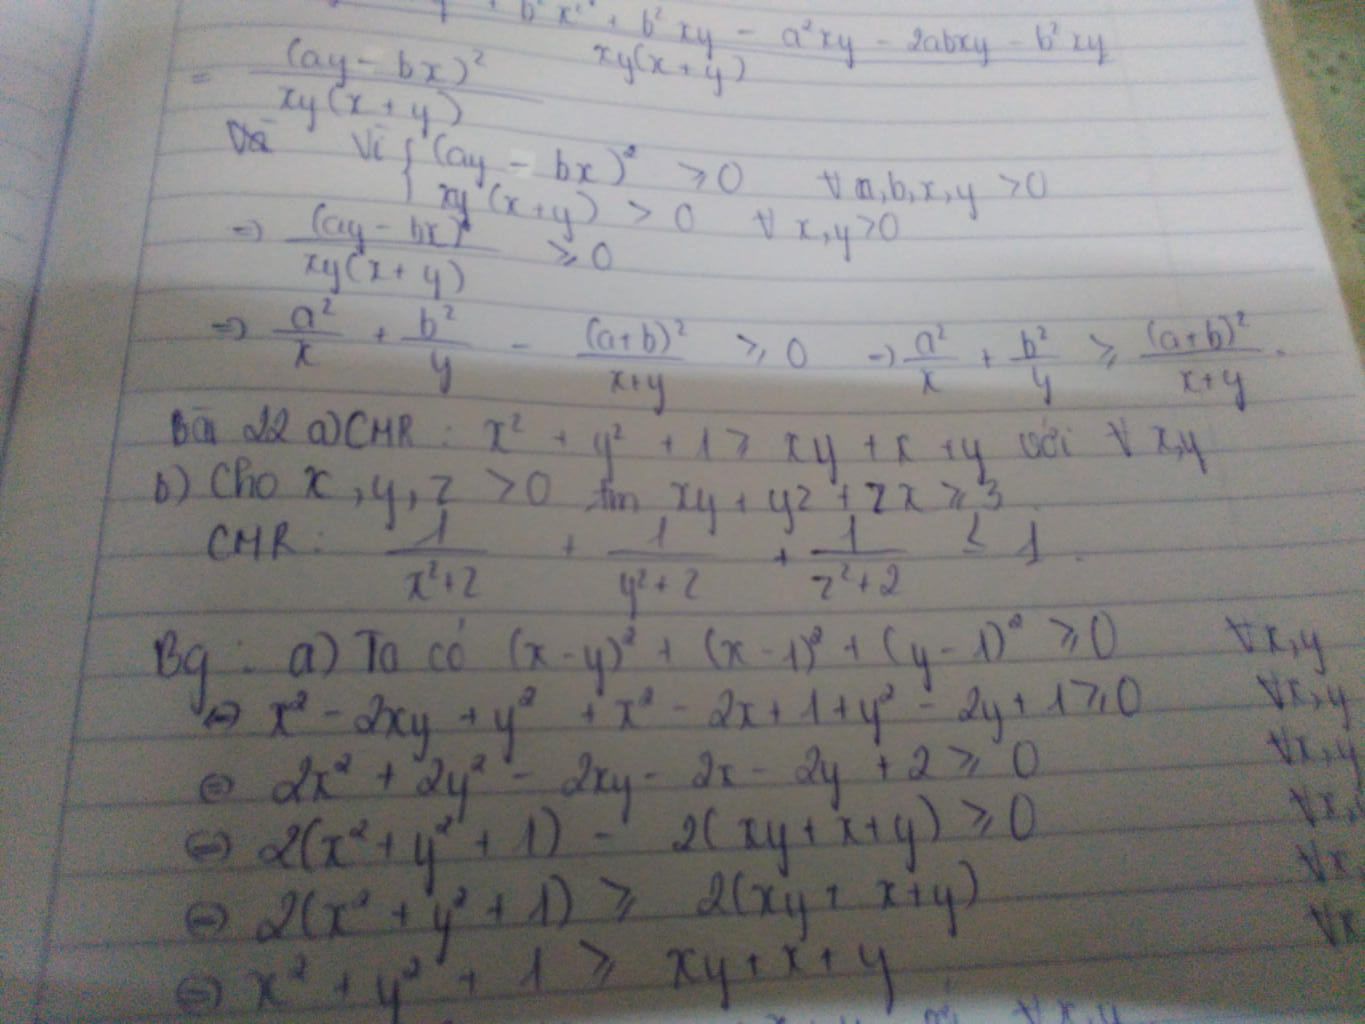 + b²x² + b²xy - a²xy - 2abxy - b²xy
xy(x+y)
= (ay - bx)² / xy(x+y)
Vì { (ay - bx)² ≥ 0 ∀ a,b,x,y > 0
xy(x+y) > 0 ∀ x,y > 0
⇒ (ay - bx)² / xy(x+y) ≥ 0
⇒ a²/x + b²/y - (a+b)²/x+y ≥ 0 ⇒ a²/x + b²/y ≥ (a+b)²/x+y .
Bài 22 a) CMR : x² + y² + 1 ≥ xy + x + y với ∀ x,y
b) Cho x, y, z > 0 tm xy + yz + zx ≥ 3
CMR : 1/x²+2 + 1/y²+2 + 1/z²+2 ≤ 1 .
Bg : a) Ta có (x-y)² + (x-1)² + (y-1)² ≥ 0 ∀x,y
⇔ x² - 2xy + y² + x² - 2x + 1 + y² - 2y + 1 ≥ 0 ∀x,y
⇔ 2x² + 2y² - 2xy - 2x - 2y + 2 ≥ 0 ∀x,y
⇔ 2(x² + y² + 1) - 2(xy + x + y) ≥ 0 ∀x,
⇔ 2(x² + y² + 1) ≥ 2(xy + x + y) ∀x,
⇔ x² + y² + 1 ≥ xy + x + y ∀x
∀x,y